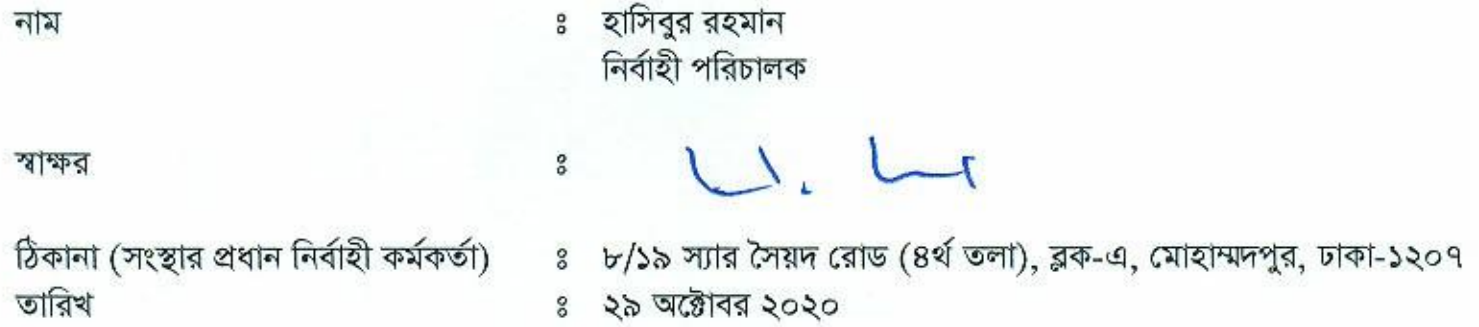 নাম ঃ হাসিবুর রহমান
নির্বাহী পরিচালক
স্বাক্ষর ঃ
ঠিকানা (সংস্থার প্রধান নির্বাহী কর্মকর্তা) ঃ ৮/১৯ স্যার সৈয়দ রোড (৪র্থ তলা), ব্লক-এ, মোহাম্মদপুর, ঢাকা-১২০৭
তারিখ ঃ ২৯ অক্টোবর ২০২০